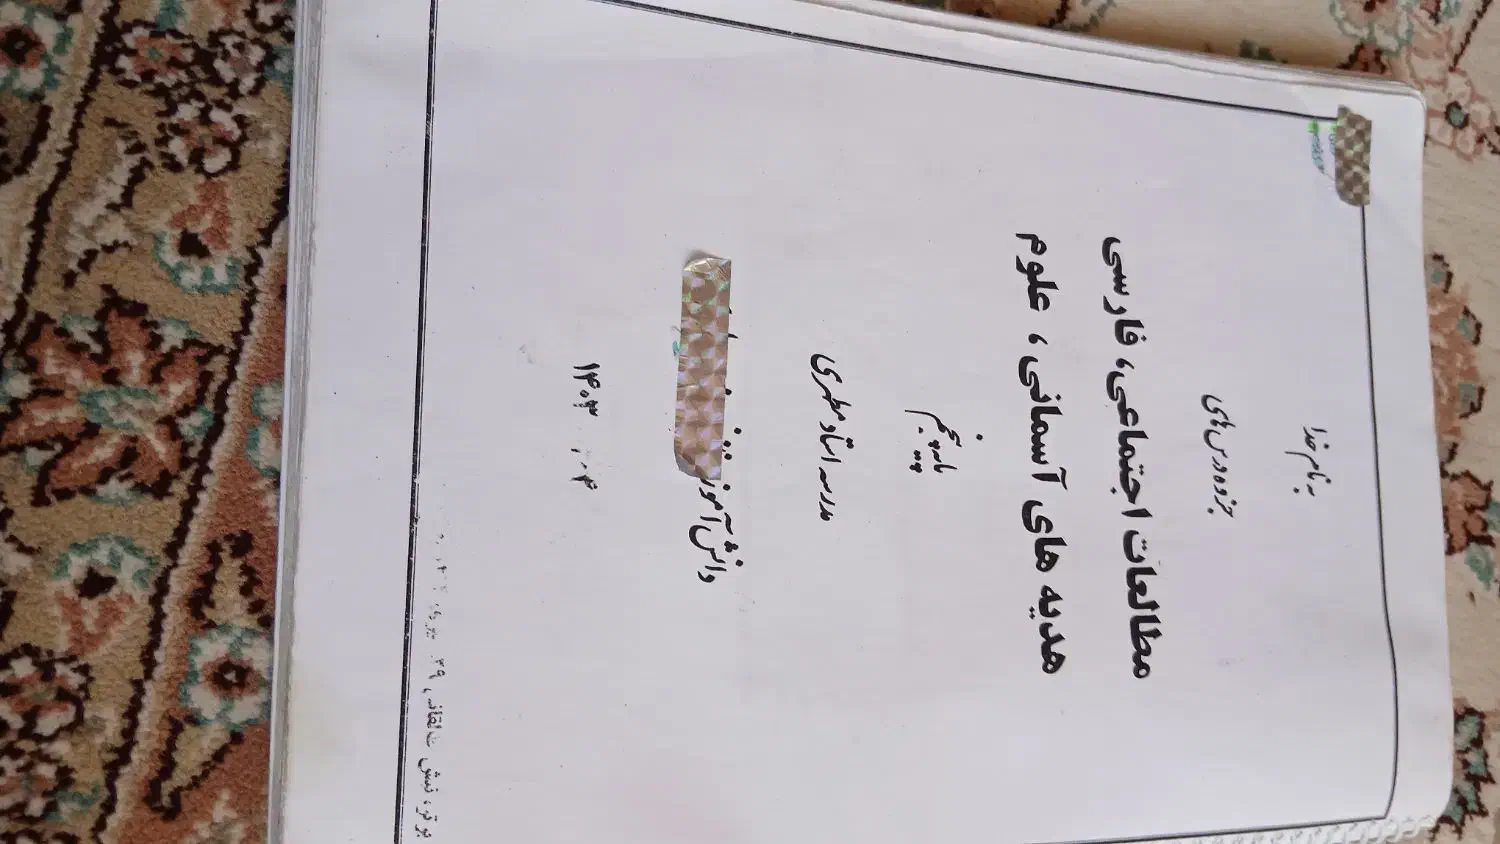 به نام خدا
جزوه درس های
مطالعات اجتماعی، فارسی
هدیه های آسمانی، علوم
پایه پنجم
مدرسه استاد مطهری
دانش آموز
۱۴۰۳
نبش طالقانی ۳۹